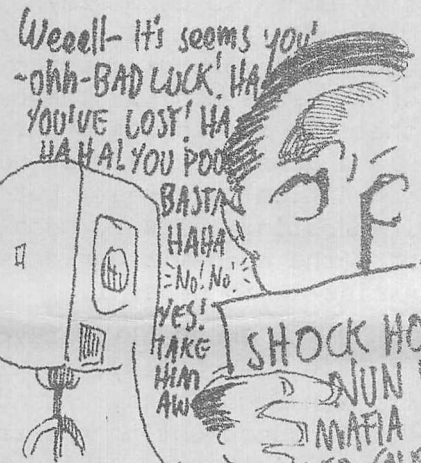 Weeell- It's seems you'
-ohh-BAD LUCK! HA
YOU'VE LOST! HA
HAHA! YOU POO
BASTA
HAHA
No! No!
YES!
TAKE
HIM
AW
SHOCK HO
NUN
MAFIA